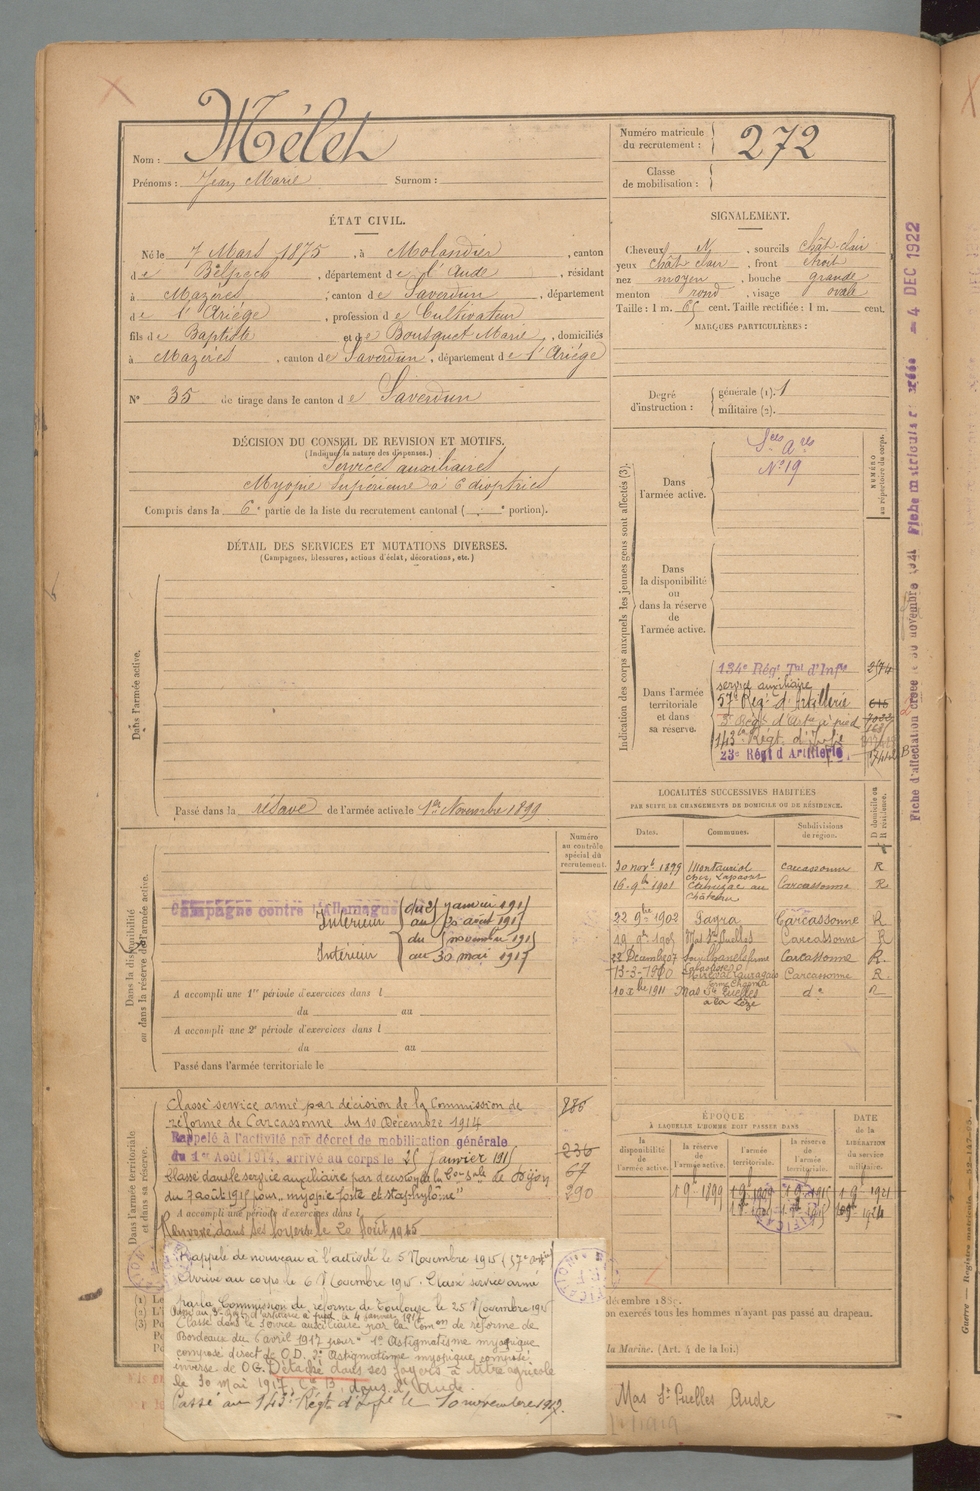 Nom : Mélet
Prénoms : Jean Marie Surnom :
ÉTAT CIVIL.
Né le 7 Mars 1875, à Molandier, canton
de Belpech, département de l'Aude, résidant
à Mazères, canton de Saverdun, département
de l'Ariége, profession de Cultivateur
fils de Baptiste et de Bousquet Marie, domiciliés
à Mazères, canton de Saverdun, département de l'Ariége
N° 35 de tirage dans le canton de Saverdun
DÉCISION DU CONSEIL DE REVISION ET MOTIFS.
(Indiquer la nature des dispenses.)
Services auxiliaires
Myopie supérieure à 6 dioptries
Compris dans la 6e partie de la liste du recrutement cantonal ( e portion).
DÉTAIL DES SERVICES ET MUTATIONS DIVERSES.
(Campagnes, blessures, actions d'éclat, décorations, etc.)
Dans l'armée active.
Passé dans la réserve de l'armée active le 1er Novembre 1899
Numéro
au contrôle
spécial du
recrutement.
Dans la disponibilité
ou dans la réserve de l'armée active.
Campagne contre l'Allemagne
Intérieur du 25 janvier 1915
au 20 août 1915
Intérieur du 5 novembre 1915
au 30 mai 1917
A accompli une 1re période d'exercices dans l
du au
A accompli une 2e période d'exercices dans l
du au
Passé dans l'armée territoriale le
Dans l'armée territoriale
et dans sa réserve.
Classé service armé par décision de la Commission de
réforme de Carcassonne du 10 Décembre 1914
Rappelé à l'activité par décret de mobilisation générale
du 1er Août 1914, arrivé au corps le 25 Janvier 1915
Classé dans le service auxiliaire par décision de la Con Sple de Dijon
du 7 août 1915 pour "myopie forte et staphylôme"
A accompli une période d'exercices dans l
Renvoyé dans ses foyers le 20 Août 1915
236
67
290
Rappelé de nouveau à l'activité le 5 Novembre 1915
Arrivé au corps le 6 Novembre 1915. Classé service armé
par la Commission de réforme de Toulouse le 25 Novembre 1915
Classé dans le service auxiliaire par la Comon de réforme de
Bordeaux du 6 avril 1917 pour 1° Astigmatisme myopique
composé direct de O.D. 2° Astigmatisme myopique composé
inverse de OG. Détaché dans ses foyers à titre agricole
le 30 mai 1917, Cie B, dans l'Aude.
Passé au 143e Régt d'Infie le 10 novembre 1917.
Numéro matricule
du recrutement : 272
Classe
de mobilisation :
SIGNALEMENT.
Cheveux N, sourcils chât clair
yeux chât clair, front étroit
nez moyen, bouche grande
menton rond, visage ovale
Taille : 1 m. 65 cent. Taille rectifiée : 1 m. cent.
MARQUES PARTICULIÈRES :
Degré
d'instruction :
générale (1). 1
militaire (2).
Indication des corps auxquels les jeunes gens sont affectés (3).
NUMÉRO
au répertoire du corps.
Dans
l'armée active.
Sces Ares
N° 19
Dans
la disponibilité
ou
dans la réserve de
l'armée active.
Dans l'armée
territoriale
et dans
sa réserve.
134e Régt Tal d'Infie
service auxiliaire
57e Régt d'Artillerie
3e Régt d'Artie à pied
143e Régt d'Infie
23e Régt d'Artillerie.
LOCALITÉS SUCCESSIVES HABITÉES
PAR SUITE DE CHANGEMENTS DE DOMICILE OU DE RÉSIDENCE.
Dates. Communes. Subdivisions
de région.
D domicile ou
R résidence.
30 novb 1899 Montauriol Carcassonne R
16 9bre 1901 Carcassonne R
22 9bre 1902 Payra Carcassonne R
19 9bre 1905 Mas Stes Puelles Carcassonne R
22 Décembre 07 Carcassonne R.
13-3-1910 Carcassonne R.
10 Xbre 1911 Mas Stes Puelles de R
ÉPOQUE
À LAQUELLE L'HOMME DOIT PASSER DANS
la
disponibilité
de
l'armée active.
la réserve
de
l'armée active.
l'armée
territoriale.
la réserve
de
l'armée
territoriale.
DATE
de la
LIBÉRATION
du service
militaire.
décembre 18
hommes n'ayant pas passé au drapeau.
la Marine. (Art. 4 de la loi.)
Mas Stes Puelles Aude
4 DEC 1922